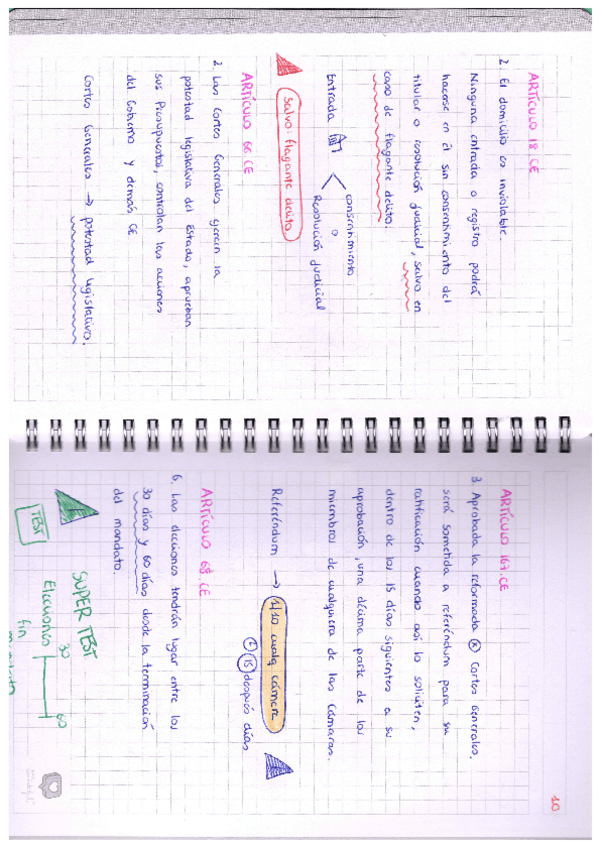 ARTÍCULO 18 CE
2. El domicilio es inviolable.
Ninguna entrada o registro podrá
hacerse en él sin consentimiento del
titular o resolución judicial, salvo en
caso de flagante delito.
Entrada
consentimiento
o
Resolución judicial
Salvo: flagante delito
ARTÍCULO 66 CE
2. Las Cortes Generales ejercen la
potestad legislativa del Estado, aprueban
sus Presupuestos, controlan las acciones
del Gobierno y demás CE
Cortes Generales → potestad legislativa.
10
ARTÍCULO 167 CE
3. Aprobada la reformada Cortes Generales.
será sometida a referéndum para su
ratificación cuando así lo soliciten,
dentro de los 15 días siguientes a su
aprobación, una décima parte de los
miembros de cualquiera de las Cámaras.
Referéndum → 1/10 cualq cámara
15 después días
ARTÍCULO 68 CE
6. Las elecciones tendrán lugar entre los
30 días y 60 días desde la terminación
del mandato.
TEST
SUPER TEST
Elecciones
30
60
fin